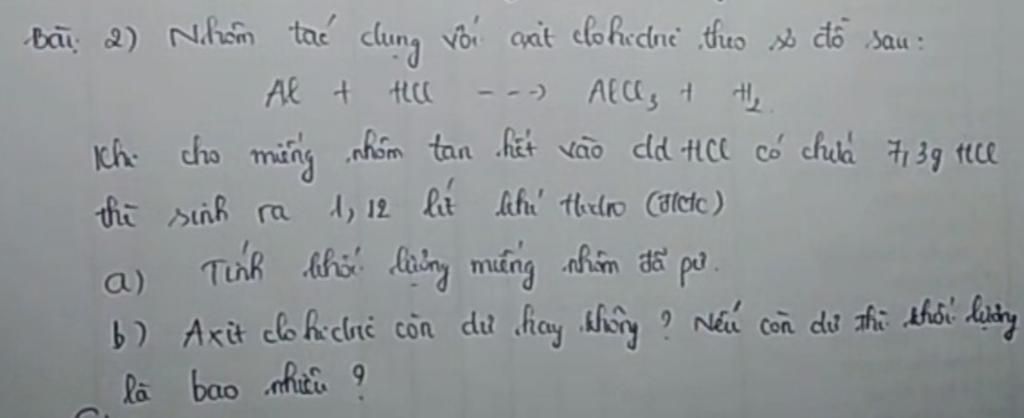 Bài: 2) Nhôm tác dụng với axit clohidric theo sơ đồ sau:
Al + HCl ---> AlCl₃ + H₂
Khi cho miếng nhôm tan hết vào dd HCl có chứa 7,3g HCl
thì sinh ra 1,12 lít khí Hidro (đktc)
a) Tính khối lượng miếng nhôm đã pư.
b) Axit clohidric còn dư hay không? Nếu còn dư thì khối lượng
là bao nhiêu?